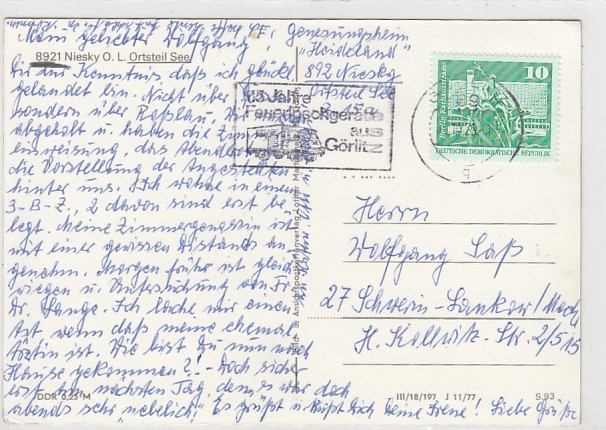 Mein geliebter Wolfgang!
8921 Niesky O. L. Ortsteil See
Genesungsheim
"Heideland"
892 Niesky
Ortsteil See
zur Kenntnis daß ich glückl.
gelandet bin. Nicht über
sondern über
abgeholt u. haben die Zimmer
einweisung, das Abendbrot
die Vorstellung der Angestellten
hinter uns. Ich wohne in einem
3-B-Z., 2 davon sind erst be
legt. Meine Zimmergenossin ist
mit einer gewissen Distanz an
genehm. Morgen früh ist gleich
wiegen u. Untersuchung von Fr.
Dr. Lange. Ich lache mir einen
Ast wenn daß meine ehemal.
Ärztin ist. Wie bist Du nun nach
Hause gekommen?! - Doch sicher
erst am nächsten Tag, denn es war doch
abends sehr "nebelich". Es grüßt u. küßt Dich Deine Irene! Liebe Grüße
15 Jahre
Feuerlöschgeräte
aus
Görlitz
10
Berlin, Rathausstraße
DEUTSCHE DEMOKRATISCHE REPUBLIK
Herrn
Wolfgang Saß
27 Schwerin-Lankow/Meckl
H. Kollwitz-Str. 2/515
DDR 0,25 M
III/18/197 J 11/77
S 93